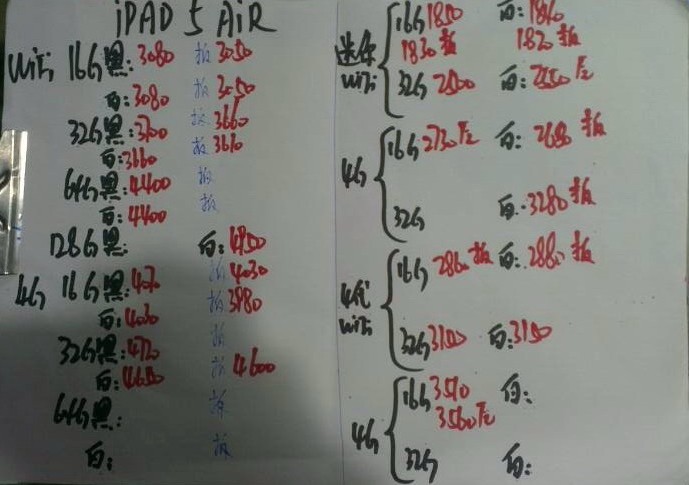 iPAD 5 AiR
WiFi 16G黑:3080 板3050
白:3080 板3050
32G黑:3700 板3660
白:3660 板3610
64G黑:4400 板
白:4400 板
128G黑: 白:4950
4G 16G黑:4070 板4030
白:4030 板3980
板
32G黑:4720 板4600
白:4650
64G黑: 板
白: 板
迷你 WiFi
16G 1850 白:1840
1830板 1820板
32G 2500 白:
4G
16G 2730 白:2680板
32G 白:3280板
4代 WiFi
16G 2860板 白:2880板
32G 3150 白:3150
4G
16G 3510 白:
3560
32G 白: